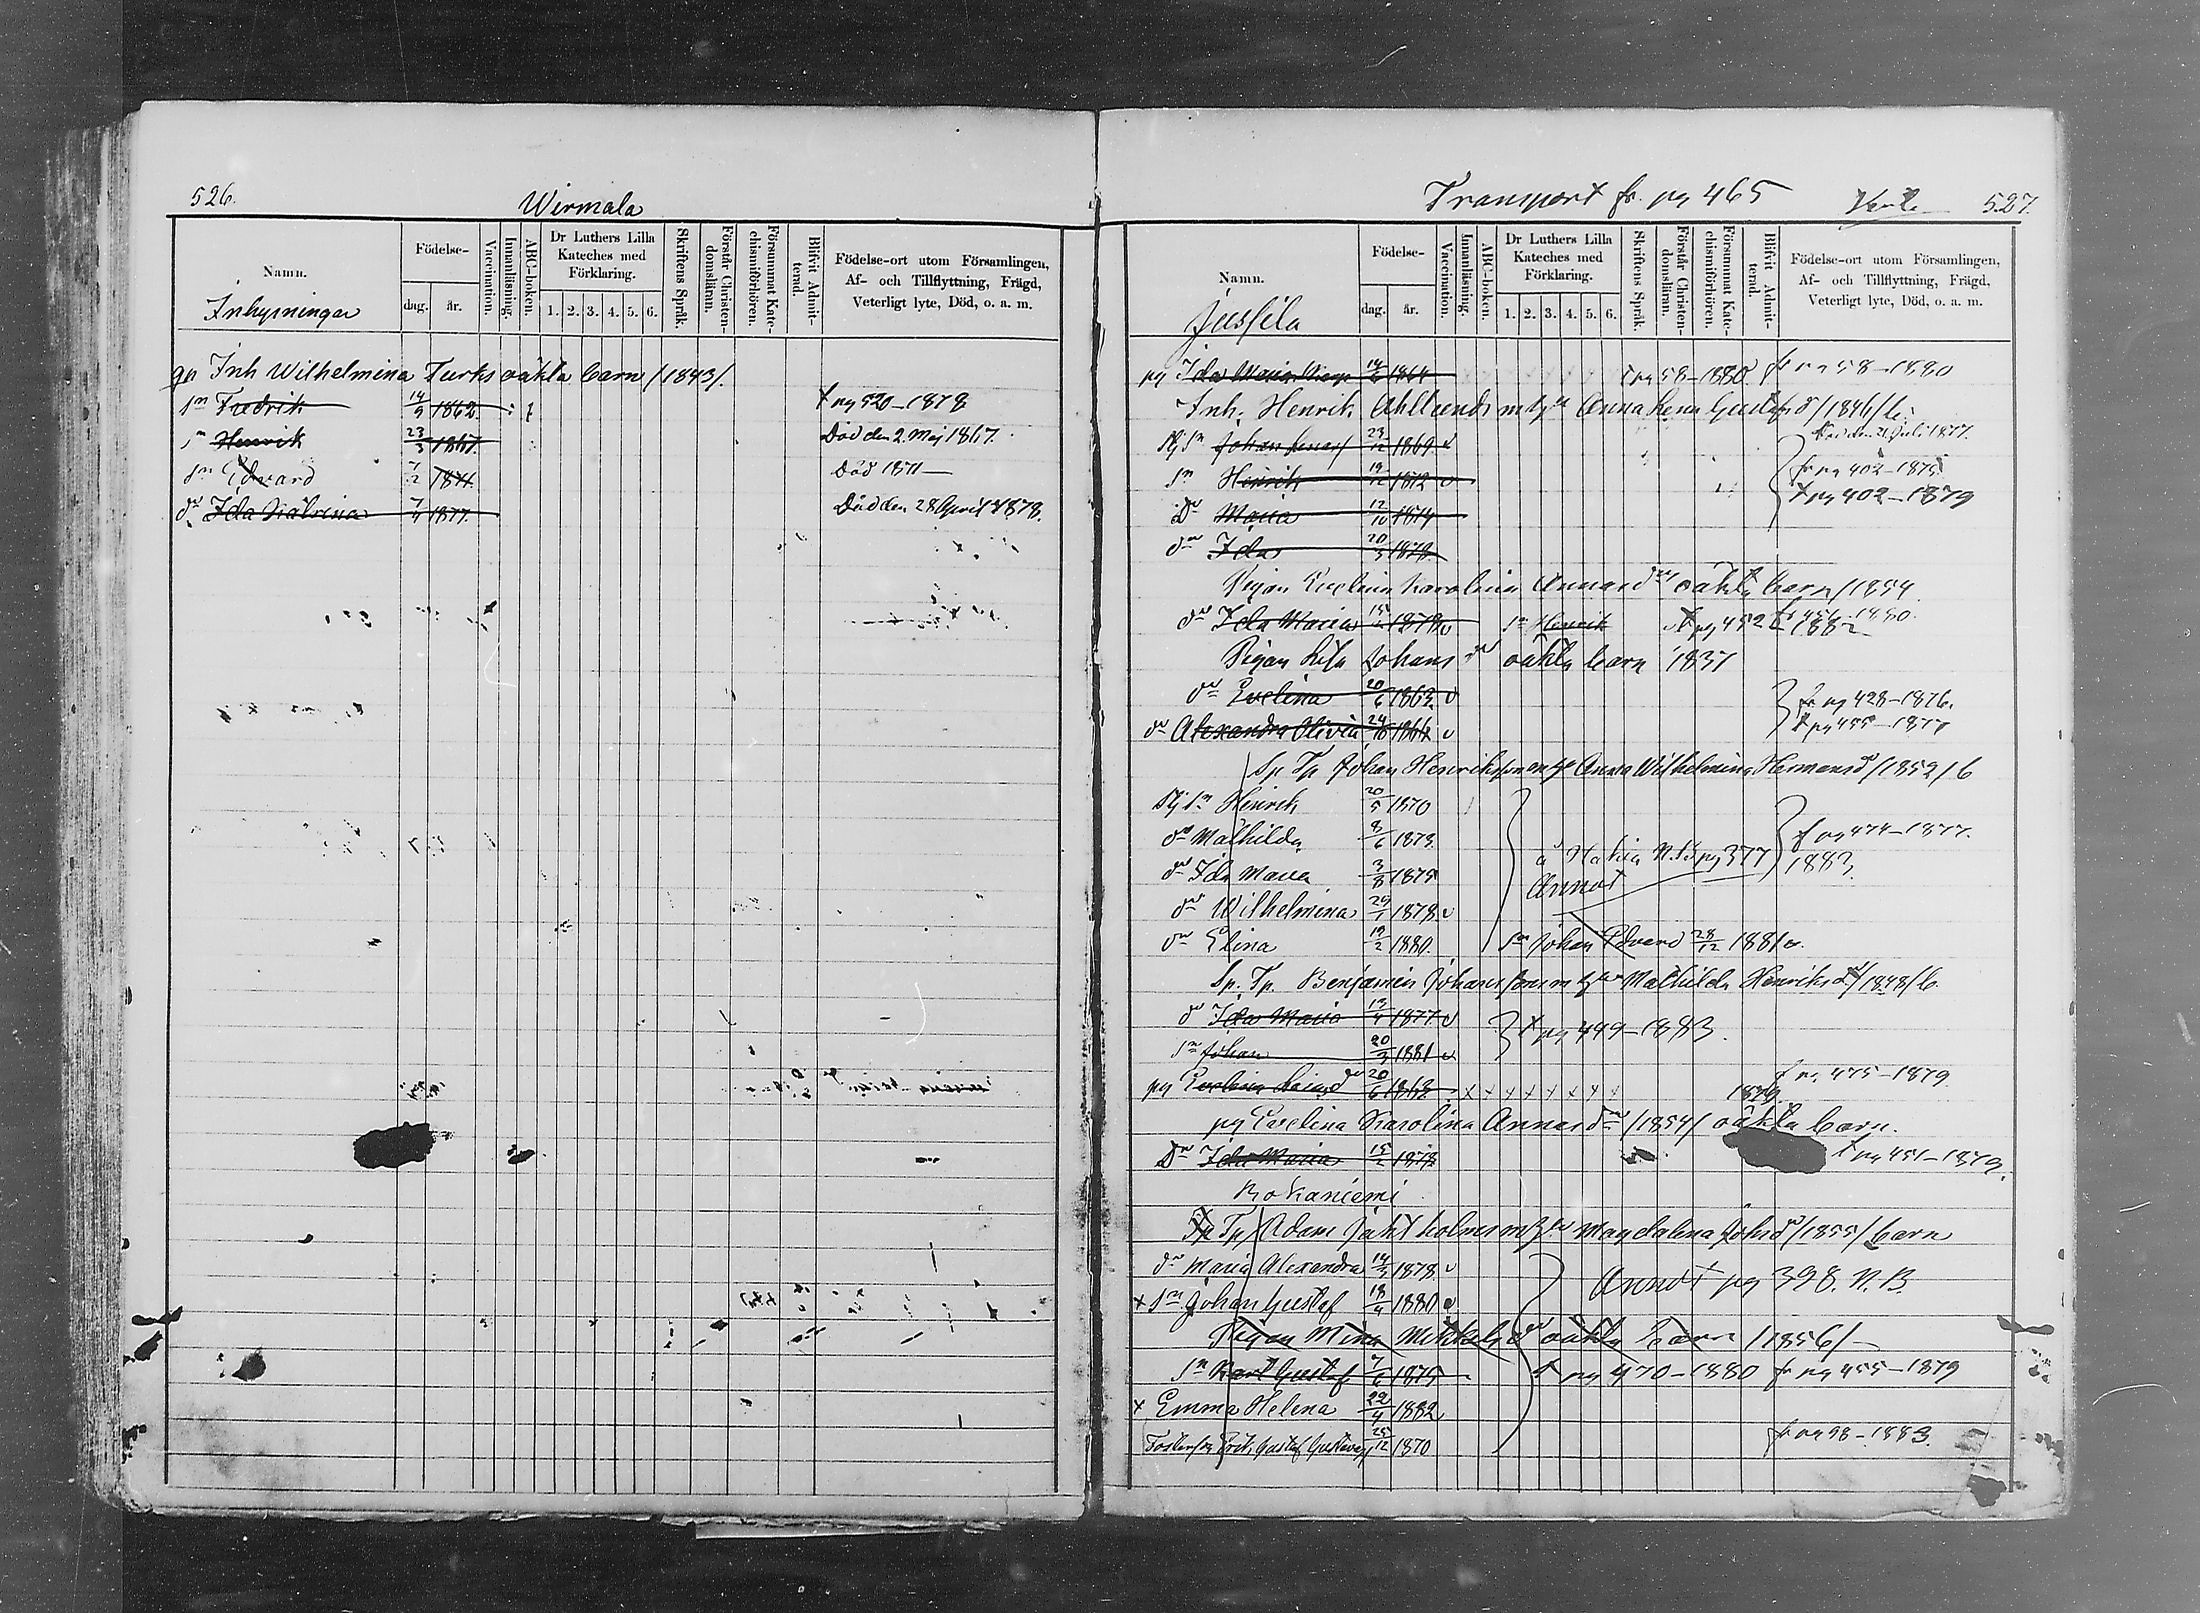 526.
Wirmala
Namn.
Inhysningar
Födelse-
dag.
år.
Vaccination.
Innanläsning.
ABC-boken.
Dr Luthers Lilla Kateches med Förklaring.
1. 2. 3. 4. 5. 6.
Skriftens Språk.
Förstår Christendomsläran.
Försummat Katechismiförhören.
Blifvit Admittend.
Födelse-ort utom Församlingen, Af- och Tillflyttning, Frägd, Veterligt lyte, Död, o. a. m.
Inh Wilhelmina Turks oäkta barn /1843/.
sn Fredrik 14/9 1862. t pg 520-1878
sn Henrik 23/3 1867. Död den 2. Maj 1867.
sn Edvard 7/2 1871. Död 1871-
dr Ida Katrina 7/4 1877. Död den 28 April 1878.
Transport fr. pg 465
527.
Namn.
Jussila
Födelse-
dag.
år.
Vaccination.
Innanläsning.
ABC-boken.
Dr Luthers Lilla Kateches med Förklaring.
1. 2. 3. 4. 5. 6.
Skriftens Språk.
Förstår Christendomsläran.
Försummat Katechismiförhören.
Blifvit Admittend.
Födelse-ort utom Församlingen, Af- och Tillflyttning, Frägd, Veterligt lyte, Död, o. a. m.
pg Ida Maria 1864 t pg 58-1880 fr pg 58-1880
Inh. Henrik Ahllund m hu Anna Lena Gustafsd /1846/ b.
Johan 23/12 1869. Död den 21 Juli 1877.
sn Henrik 19/12 1872 fr pg 402-1875
Dr Maria 12/10 1874 t pg 402-1879
dr Ida 20/3 1878
Pigan Evelina Karolina Annasdr oäkta barn /1854
dr Ida Maria 15/2 1878 sn Henrik 1882
Pigan Johansdr oäkta barn 1837
dr Evelina 20/6 1863. fr pg 428-1876.
dr Alexandra Olivia 24/10 1866 t pg 455-1877
Sp Tp Johan Henriksson m hu Anna Wilhelmina Hermansd /1852/ b
sn Henrik 20/5 1870
dr Mathilda 8/6 1873 fr pg 474-1877.
dr Ida Maria 3/8 1875 Annot N.B. pg 377 1883.
dr Wilhelmina 29/1 1878
dr Elina 19/2 1880. sn Johan Edvard 28/12 1881
Sp. Tp. Benjamin Johansson m hu Mathilda Henriksd /1848/ b.
d Ida Maria 13/4 1877 t pg 449-1883.
sn Johan 20/3 1881
pg Evelina 20/6 1863 x x x x x x x x 1879 fr pg 475-1879
pg Evelina Karolina Annasdr /1854/ oäkta barn.
Dr Ida Maria 15/2 1878 t pg 451-1879.
Kokaniemi
Sp Tp Adam m hu Magdalena Johsdr /1855/ barn
dr Maria Alexandra 14/3 1878 Annot pg 398. N.B.
x sn Johan Gustaf 18/4 1880
Pigan Mina oäkta barn /1856/-
sn Karl Gustaf 7/6 1875 t pg 470-1880 fr pg 455-1879
x Emma Helena 22/4 1882
Erik Gustaf 25/12 1870 fr pg 98-1883.